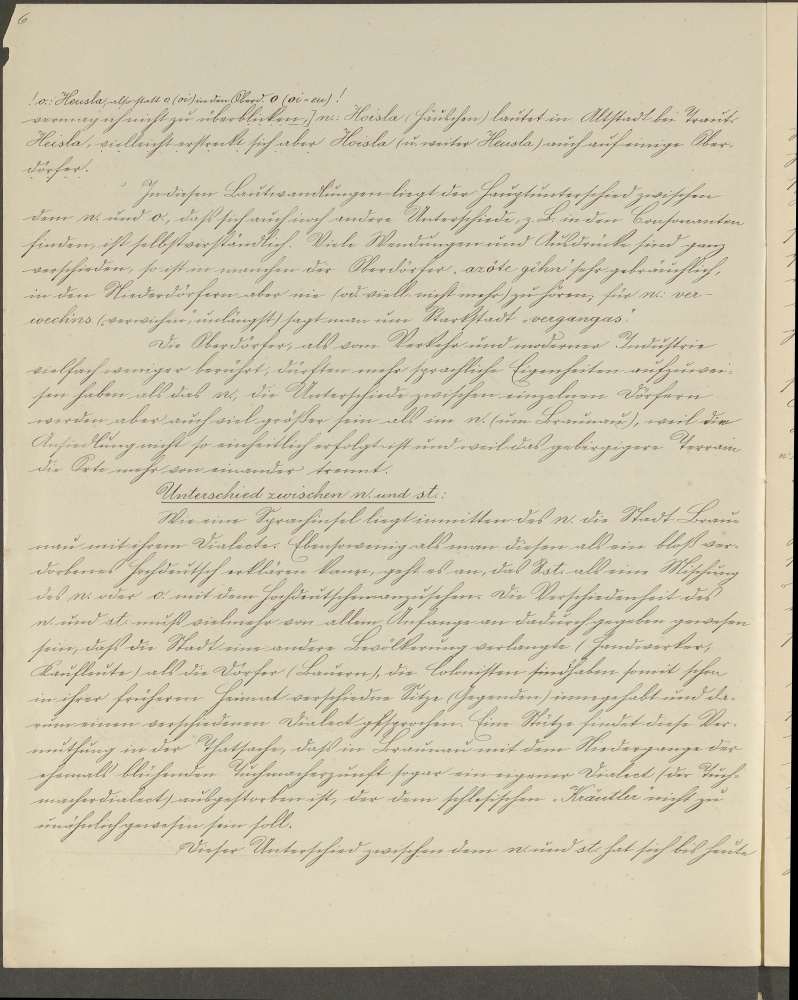 6
! o.: Heusla, also statt o (oi) in den Oberd. o (oi-eu) !
vermag ich nicht zu überblicken.] n.: Hoisla (Häuschen) lautet in Altstadt bei Traut.
Heisla, vielleicht erstreckt sich aber Hoisla (u. weiter Heusla) auch auf einige Ober-
dörfer.
In diesen Lautwandlungen liegt der Hauptunterschied zwischen
dem n. und o., daß sich auch noch andere Unterschiede, z. B. in den Consonanten
finden, ist selbstverständlich. Viele Wendungen und Ausdrücke sind ganz
verschieden, so ist in manchen der Oberdörfer „azôte gêhn“ sehr gebräuchlich,
in den Niederdörfern aber nie (od. viell. nicht mehr) zu hören, für n.: ver-
wechins („verwichen“, unlängst) sagt man um Starkstadt „vergangas“.
Die Oberdörfer, als vom Verkehr und moderner Industrie
vielfach weniger berührt, dürften mehr sprachliche Eigenheiten aufzuwei-
sen haben als das n., die Unterschiede zwischen einzelnen Dörfern
werden aber auch viel größer sein als im n. (um Braunau), weil die
Ansiedlung nicht so einheitlich erfolgt ist und weil das gebirgigere Terrain
die Orte mehr von einander trennt.
Unterschied zwischen n. und st.:
Wie eine Sprachinsel liegt inmitten des n. die Stadt Brau-
nau mit ihrem Dialecte. Ebensowenig als man diesen als ein bloß ver-
dorbenes Hochdeutsch erklären kann, geht es an, das st. als eine Mischung
des n. oder o. mit dem Hochdeutschen anzusehen. Die Verschiedenheit des
n. und st. muß vielmehr von allem Anfange an dadurch gegeben gewesen
sein, daß die Stadt eine andere Bevölkerung verlangte (Handwerker,
Kaufleute) als die Dörfer (Bauern), die Colonisten haben somit schon
in ihrer früheren Heimat verschiedne Sitze (Gegenden) innegehabt und da-
rum einen verschiedenen Dialect gesprochen. Eine Stütze findet diese Ver-
muthung in der Thatsache, daß in Braunau mit dem Niedergange der
ehemals blühenden Tuchmacherzunft sogar ein eigener Dialect (der Tuch-
macherdialect) ausgestorben ist, der dem schlesischen „Kräutler“ nicht zu
unähnlich gewesen sein soll.
Dieser Unterschied zwischen dem n. und st. hat sich bis heute